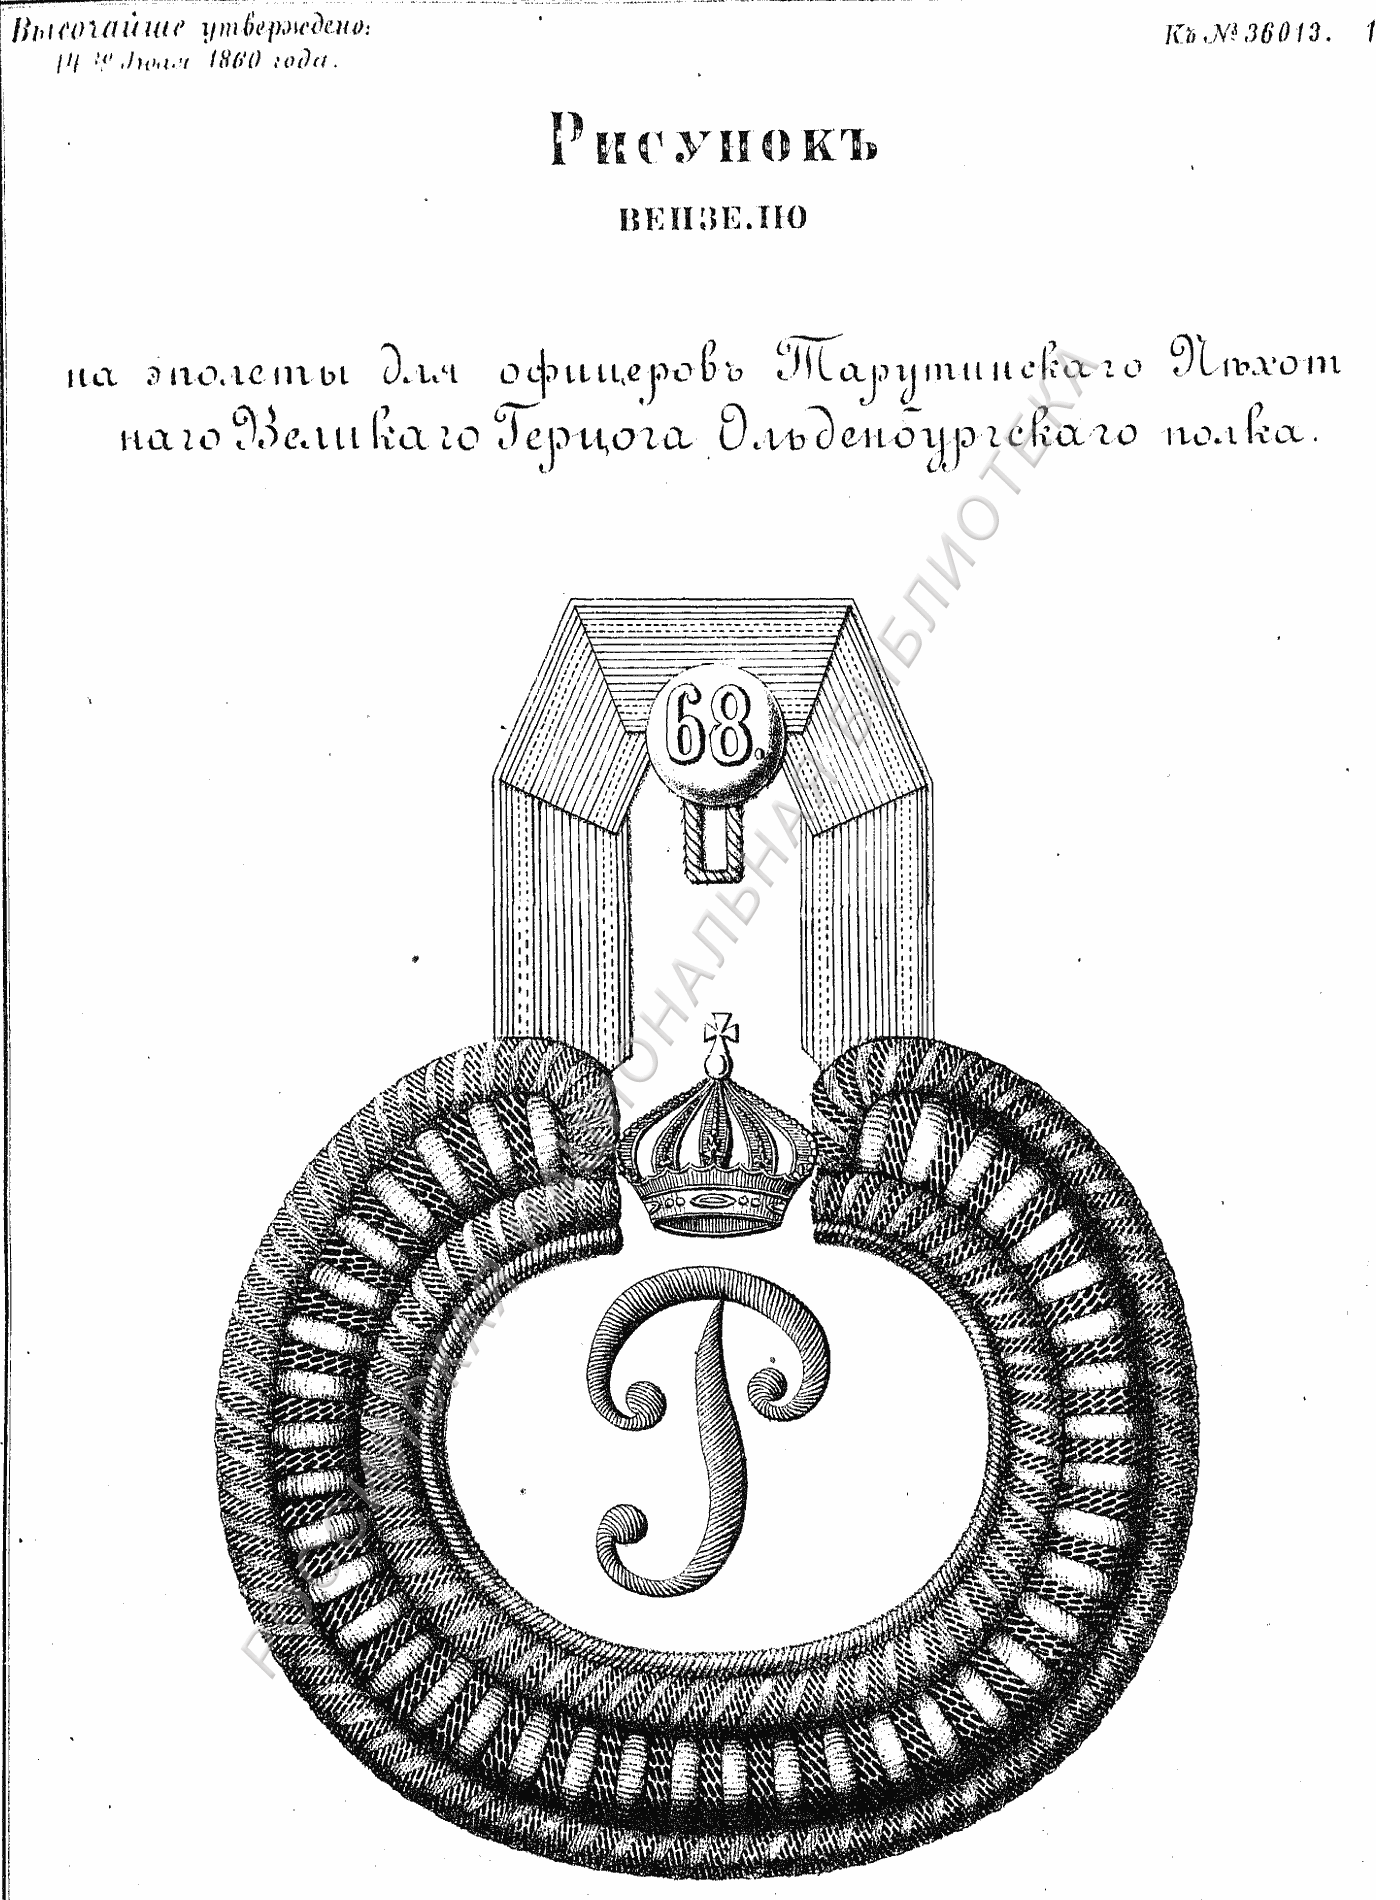 Высочайше утверждено:
14го Іюля 1860 года.
Къ № 36013. 1
Рисунокъ
вензелю
на эполеты для офицеровъ Тарутинскаго Пѣхот
наго Великаго Герцога Ольденбургскаго полка.
68.
Р
РОССИЙСКАЯ НАЦИОНАЛЬНАЯ БИБЛИОТЕКА